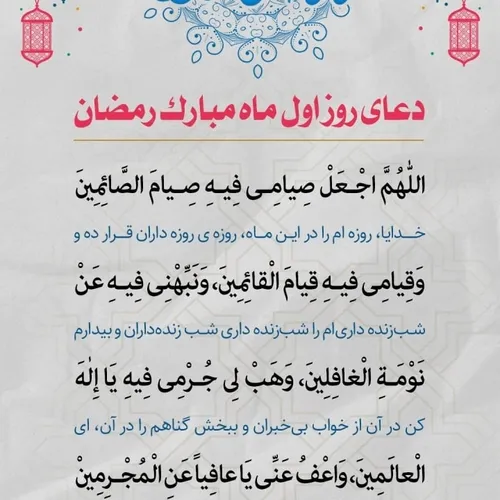 دعای روز اول ماه مبارک رمضان
اللّٰهُمَّ اجْعَلْ صِیامِی فِیهِ صِیامَ الصَّائِمِینَ
خدایا، روزه ام را در این ماه، روزه ی روزه داران قرار ده و
وَقِیامِی فِیهِ قِیامَ الْقائِمِینَ، وَنَبِّهْنی فِیهِ عَنْ
شب‌زنده داری‌ام را شب‌زنده داری شب زنده‌داران و بیدارم
نَوْمَةِ الْغافِلِینَ، وَهَبْ لِی جُرْمِی فِیهِ یَا إِلٰهَ
کن در آن از خواب بی‌خبران و ببخش گناهم را در آن، ای
الْعالَمِینَ، وَاعْفُ عَنِّی یَا عافِیاً عَنِ الْمُجْرِمِینَ